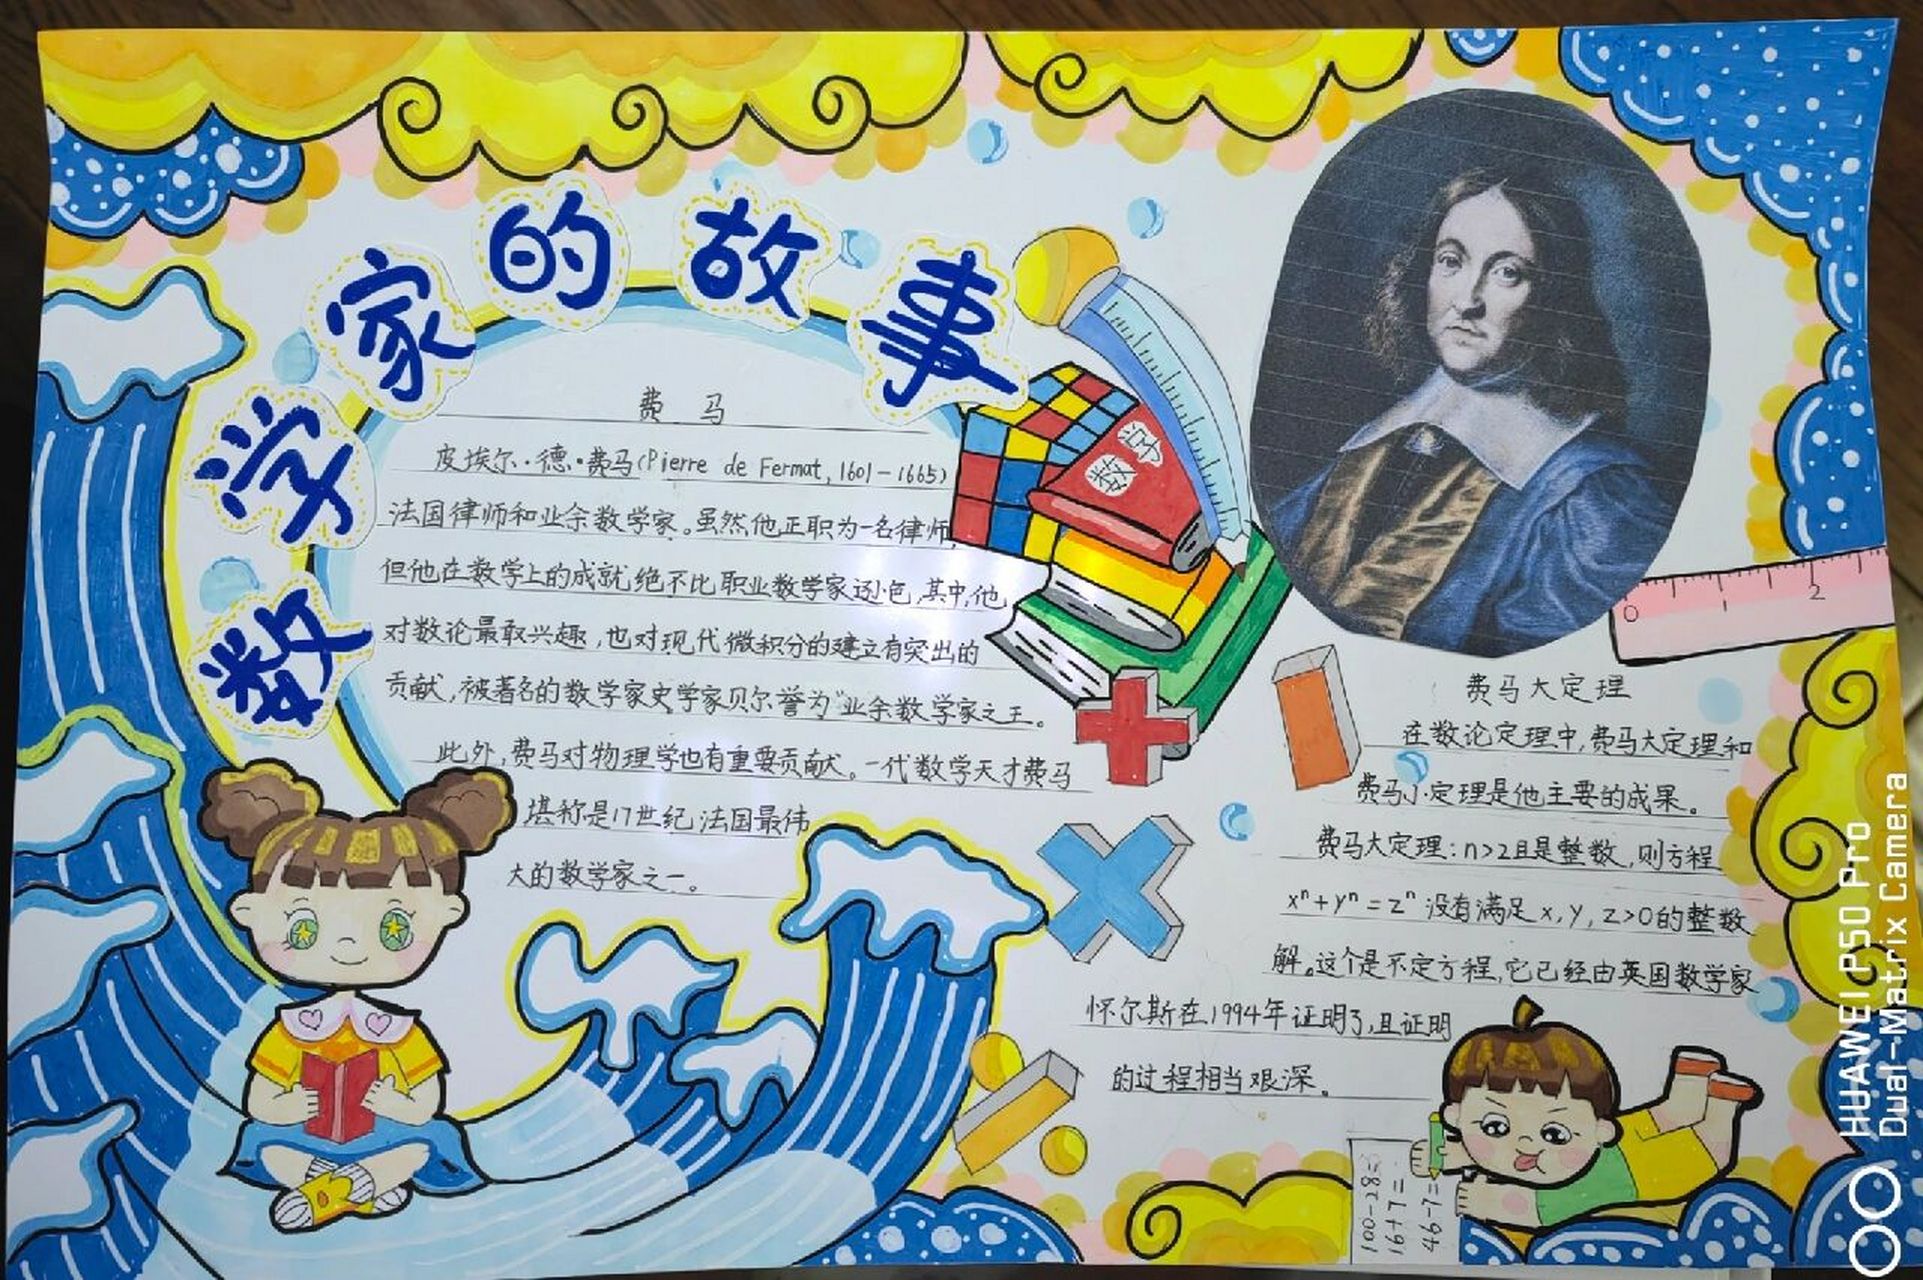 数学家的故事
费 马
皮埃尔·德·费马(Pierre de Fermat,1601-1665)
法国律师和业余数学家。虽然他正职为一名律师,
但他在数学上的成就绝不比职业数学家逊色,其中,他
对数论最取兴趣,也对现代微积分的建立有突出的
贡献,被著名的数学家史学家贝尔誉为"业余数学家之王。
此外,费马对物理学也有重要贡献。一代数学天才费马
堪称是17世纪法国最伟
大的数学家之一。
数学
0 1 2
费马大定理
在数论定理中,费马大定理和
费马小定理是他主要的成果。
费马大定理:n>2且是整数,则方程
xⁿ+yⁿ=zⁿ没有满足x,y,z>0的整数
解。这个是不定方程,它已经由英国数学家
怀尔斯在1994年证明了,且证明
的过程相当艰深。
100-28=
16+7=
46-7=
HUAWEI P50 Pro
Dual-Matrix Camera